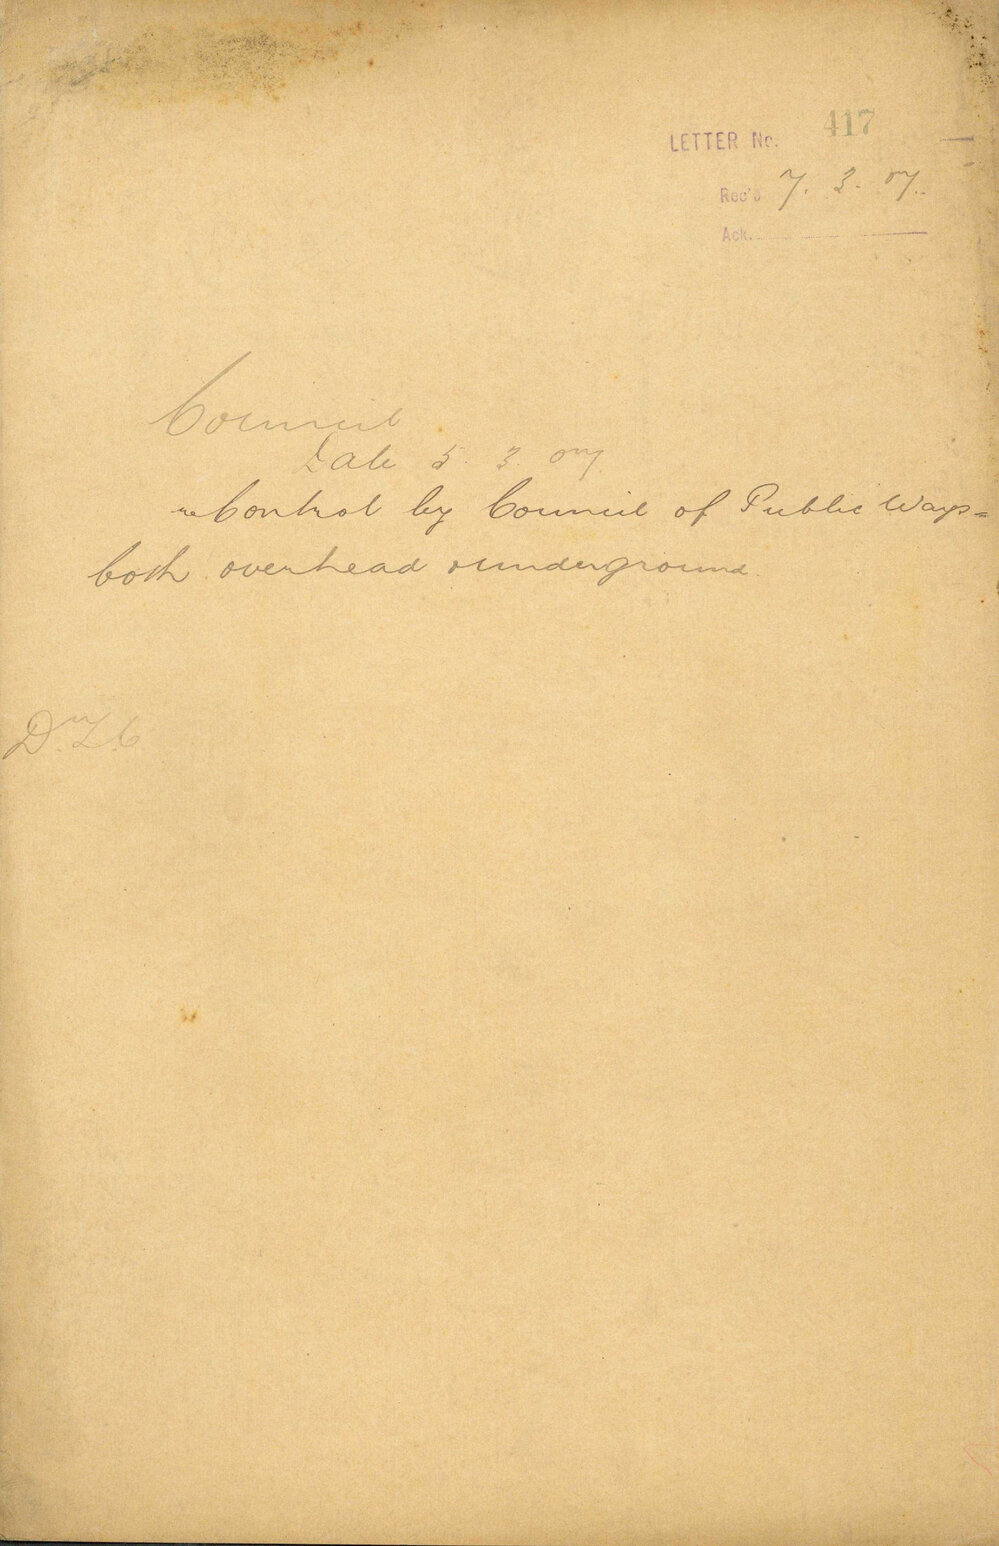 LETTER No. 417
Rec'd 7. 3. 07.
Ack.
Council
Date 5. 3. 07
re Control by Council of Public Ways=
both overhead & underground.